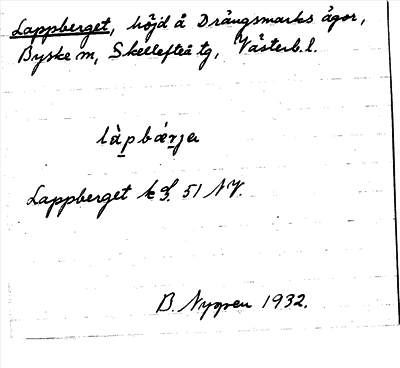 Lappberget, höjd å Drängsmarks ägor,
Byske m, Skellefteå tg, Västerb.l.
làpbærja
Lappberget k bl. 51 NV.
B. Nygren 1932.